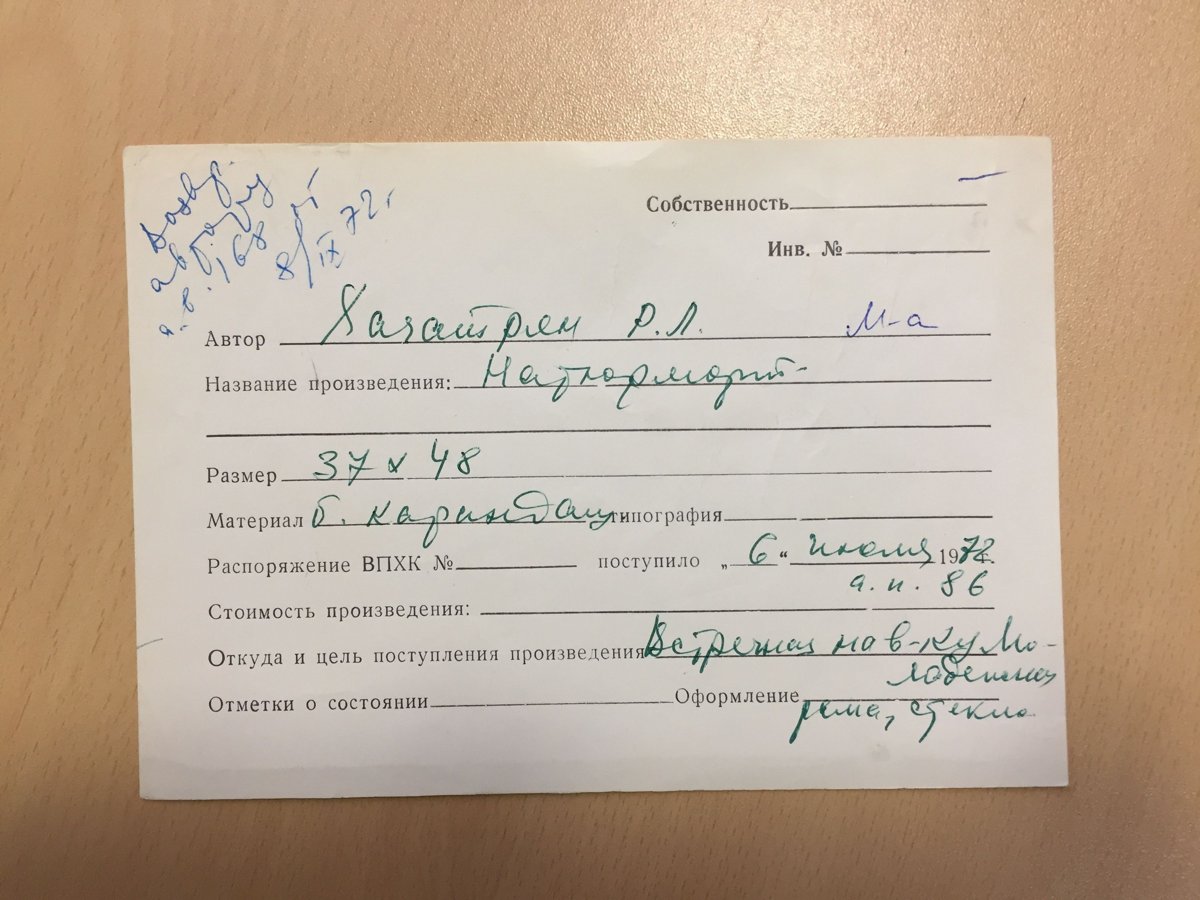 Возвр.
автору
а.в. 168 от
8/IX 72г
Собственность —
Инв. №
Автор Хачатрян Р.Л. М-а
Название произведения: Натюрморт
Размер 37 х 48
Материал б. карандаш типография
Распоряжение ВПХК № поступило „ 6 “ июля 1972 г.
а.п. 86
Стоимость произведения:
Откуда и цель поступления произведения Встречная на в-ку Мо-
лодежная
Отметки о состоянии Оформление
рама, стекло